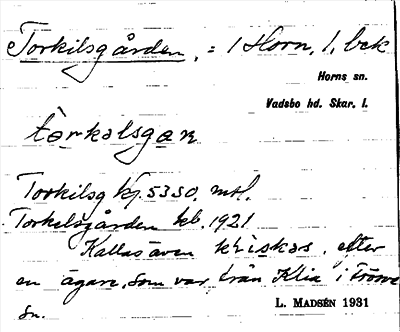 Torkilsgården, = 1 Horn, 1, bck
Horns sn.
Vadsbo hd. Skar. l.
torkəlsgan
Torkilsg kj. 5350. mtl.
Torkelsgården kb. 1921
Kallas även kriskas, efter
en ägare, som var från Klia i
sn.
L. MADSÉN 1931